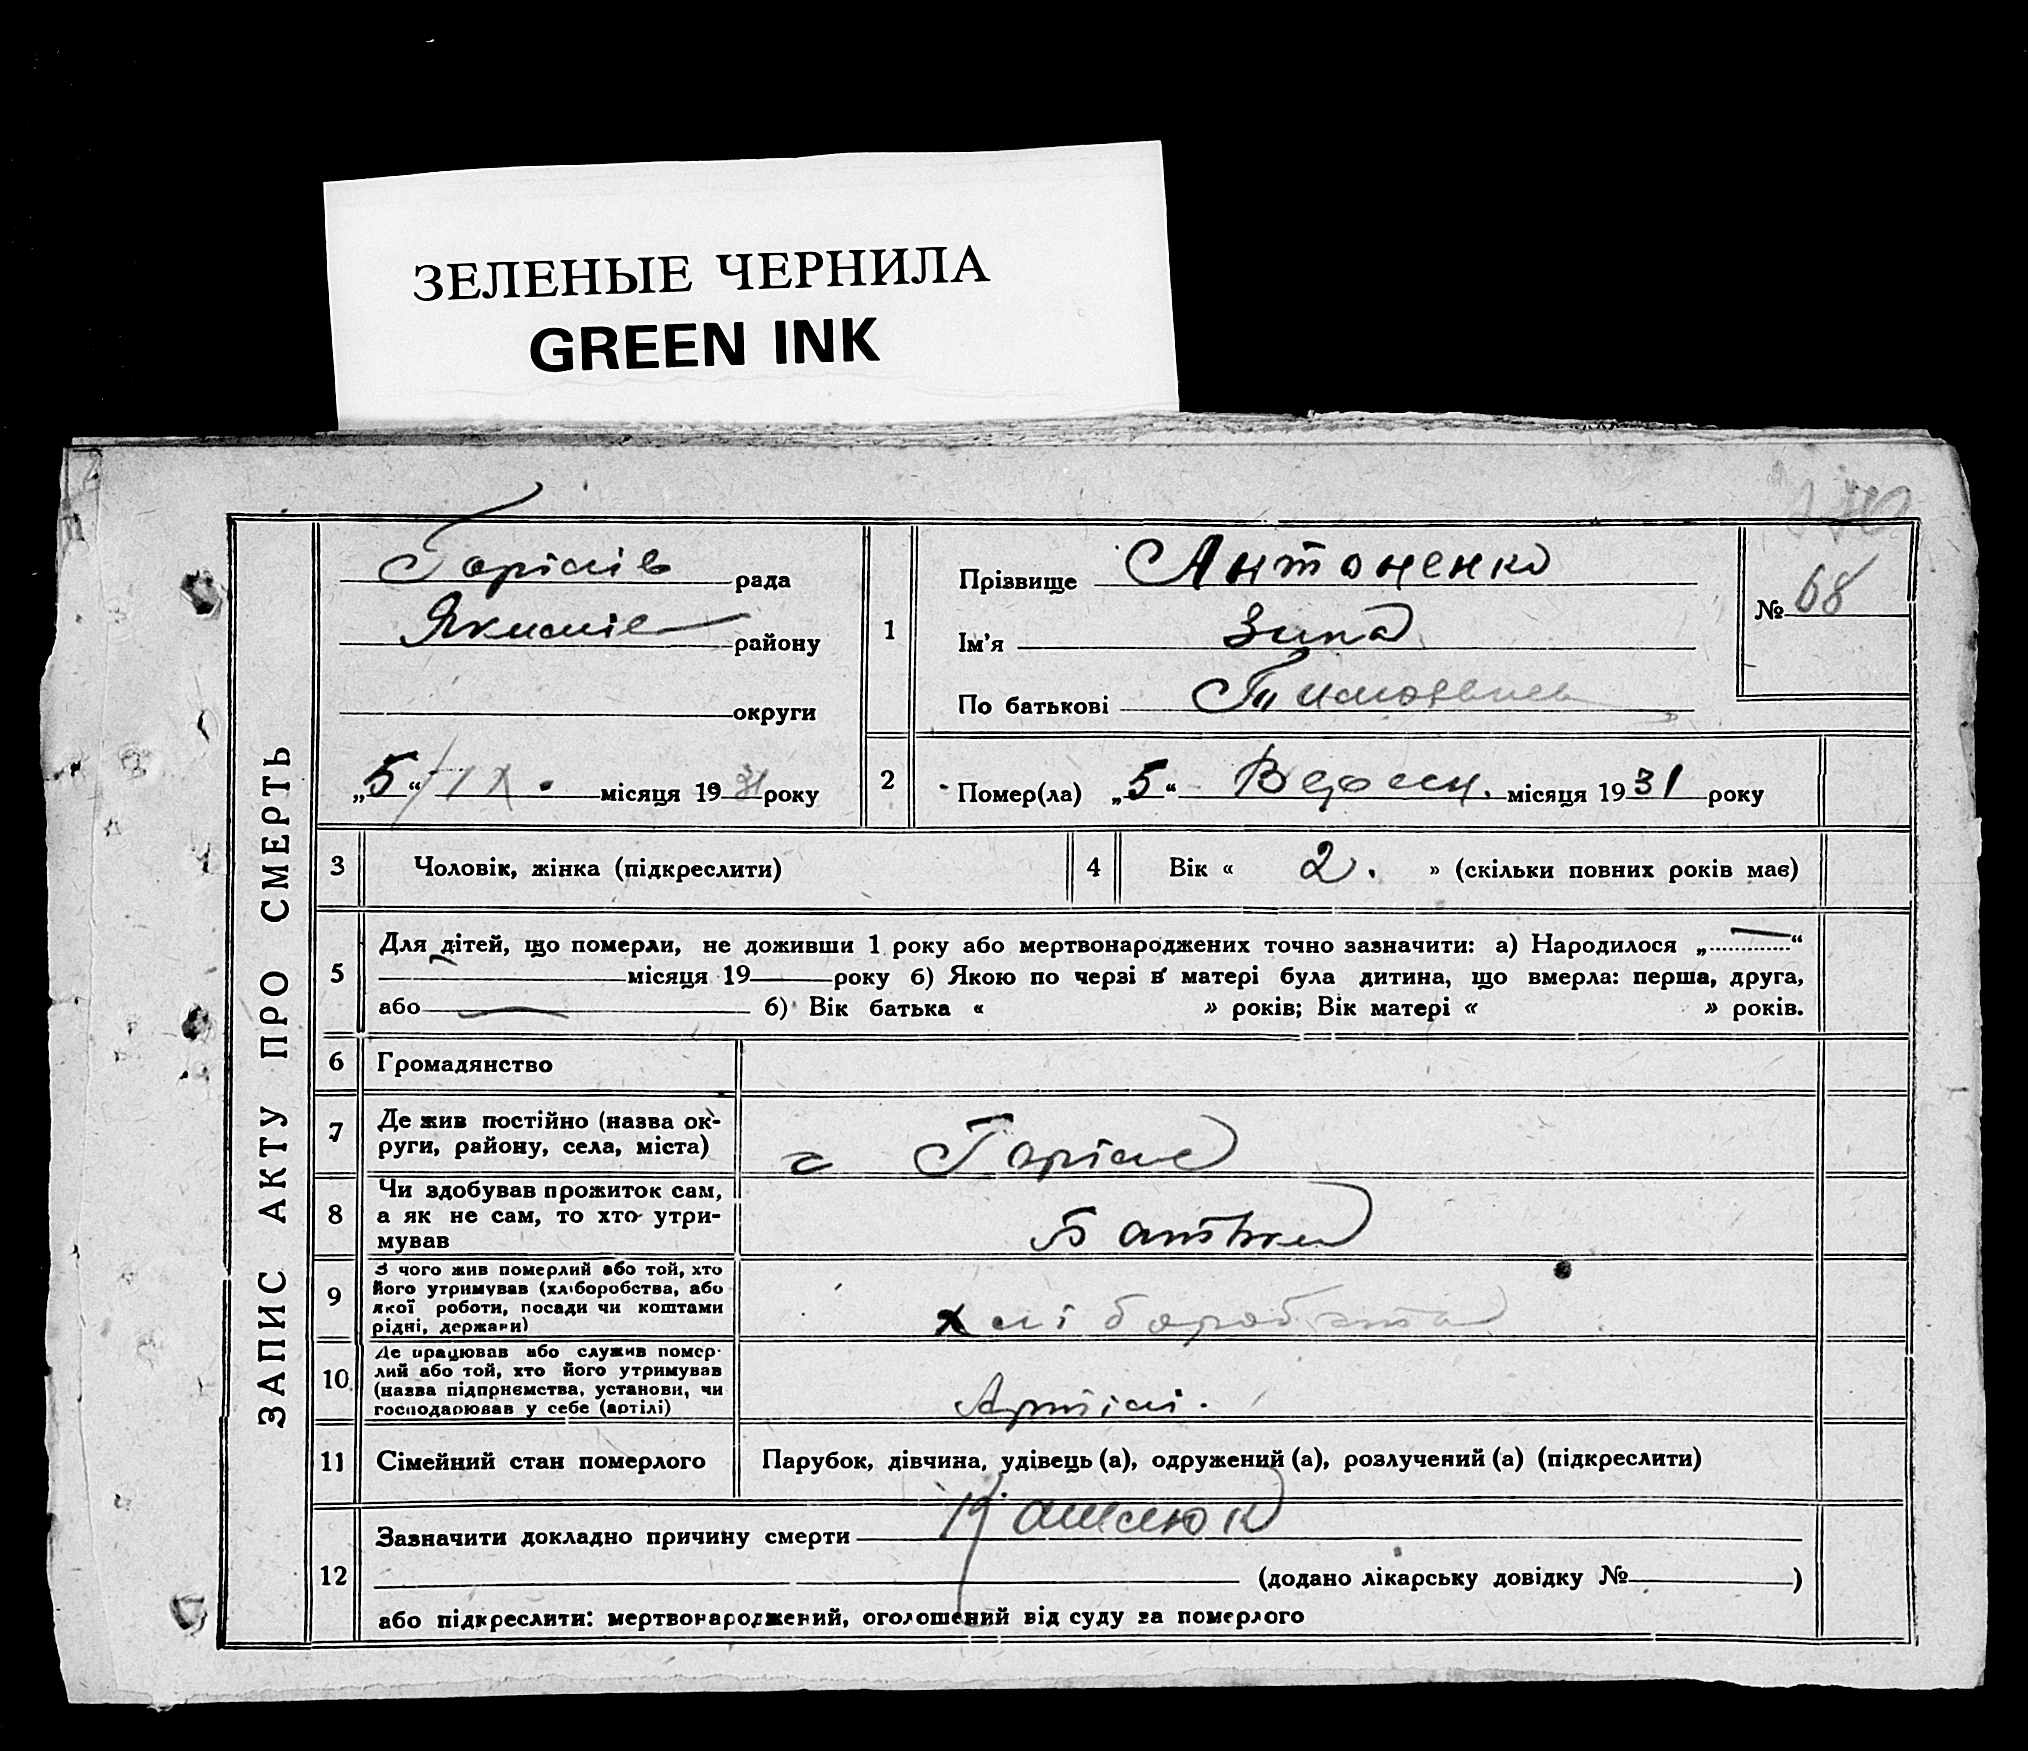 ЗЕЛЕНЫЕ ЧЕРНИЛА
GREEN INK
ЗАПИС АКТУ ПРО СМЕРТЬ
рада
району
округи
„5“ /IX. місяця 1931 року
1
Прізвище Антоненко
Ім'я Зина
По батькові
№ 68
2
Помер(ла) „5“ місяця 1931 року
3
Чоловік, жінка (підкреслити)
4
Вік « 2. » (скільки повних років має)
5
Для дітей, що померли, не доживши 1 року або мертвонароджених точно зазначити: а) Народилося „ “
місяця 19 року б) Якою по черзі в матері була дитина, що вмерла: перша, друга,
або б) Вік батька « » років; Вік матері « » років.
6
Громадянство
7
Де жив постійно (назва ок-
руги, району, села, міста)
8
Чи здобував прожиток сам,
а як не сам, то хто утри-
мував
Батьки
9
З чого жив померлий або той, хто
його утримував (хліборобства, або
якої роботи, посади чи коштами
рідні, держави)
10
Де працював або служив помер-
лий або той, хто його утримував
(назва підприємства, установи, чи
господарював у себе (артілі)
Артілі.
11
Сімейний стан померлого
Парубок, дівчина, удівець (а), одружений (а), розлучений (а) (підкреслити)
12
Зазначити докладно причину смерти Кашлюк
(додано лікарську довідку № )
або підкреслити: мертвонароджений, оголошений від суду за померлого